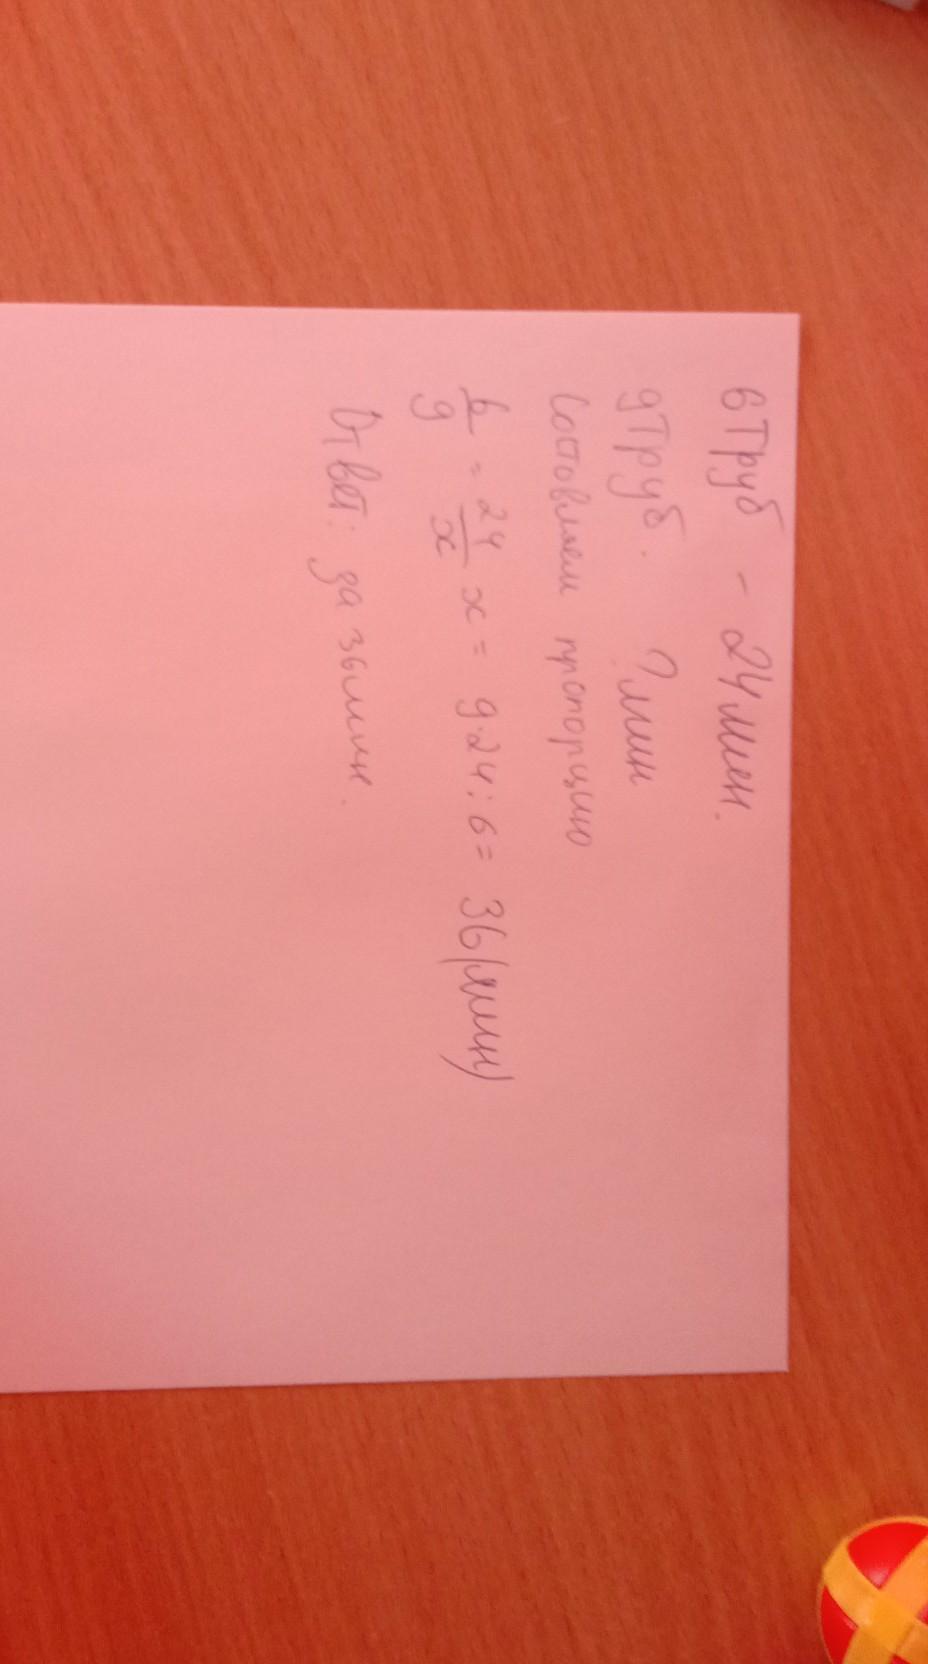 6 Труб - 24 мин.
9 Труб. ? мин
Состовляем пропорцию
6/9 = 24/x x = 9·24:6= 36(мин)
Ответ: за 36 мин.